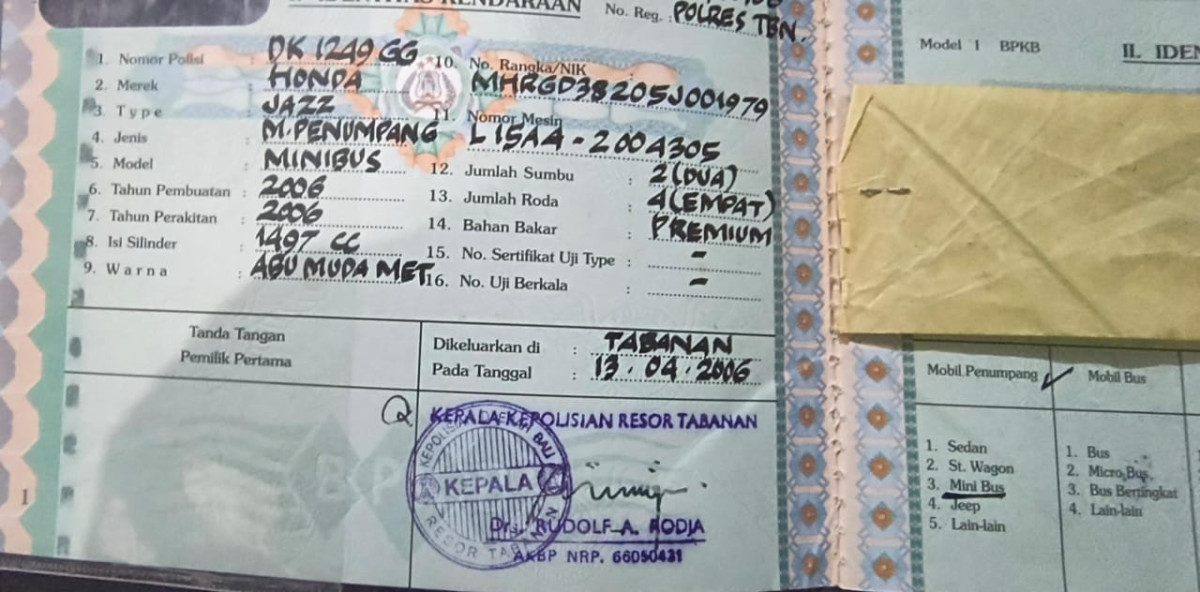 IDENTITAS KENDARAAN
No. Reg. : POLRES TBN.
1. Nomor Polisi : DK 1249 GG
2. Merek : HONDA
3. Type : JAZZ
4. Jenis : M. PENUMPANG
5. Model : MINIBUS
6. Tahun Pembuatan : 2006
7. Tahun Perakitan : 2006
8. Isi Silinder : 1497 CC
9. Warna : ABU MUDA MET.
10. No. Rangka/NIK :
MHRGD38205J001979
11. Nomor Mesin
L15A4-2004305
12. Jumlah Sumbu : 2 (DUA)
13. Jumlah Roda : 4 (EMPAT)
14. Bahan Bakar : PREMIUM
15. No. Sertifikat Uji Type : -
16. No. Uji Berkala : -
Tanda Tangan
Pemilik Pertama
Dikeluarkan di : TABANAN
Pada Tanggal : 13.04.2006
KEPALA KEPOLISIAN RESOR TABANAN
KEPALA
RESOR TABANAN
Drs. RUDOLF A. RODJA
AKBP NRP. 66050431
1
Model 1 BPKB
II. IDEN
Mobil Penumpang ✓
1. Sedan
2. St. Wagon
3. Mini Bus
4. Jeep
5. Lain-lain
Mobil Bus
1. Bus
2. Micro Bus
3. Bus Bertingkat
4. Lain-lain